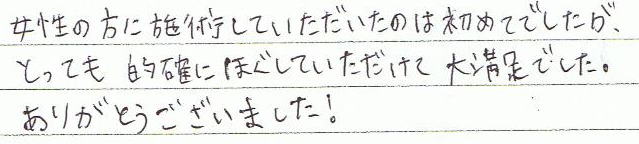 女性の方に施術していただいたのは初めてでしたが、
とっても 的確にほぐしていただけて 大満足でした。
ありがとうございました!